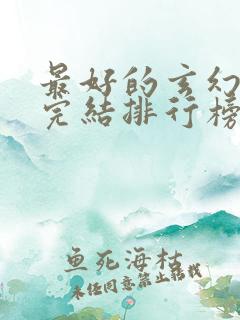 最好的玄幻
完结排行榜
鱼死海枯
未经同意禁止转载